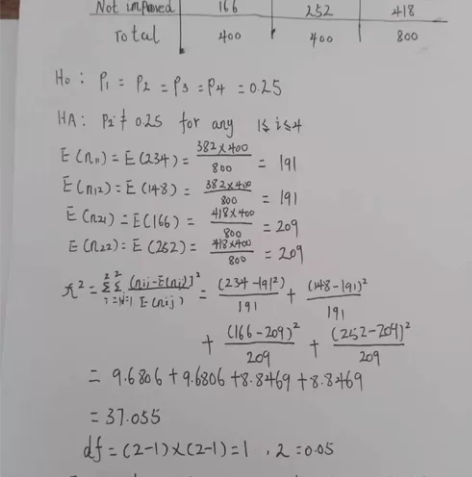 Not improved 166 252 418
Total 400 400 800
H₀ : P₁ = P₂ = P₃ = P₄ = 0.25
HA : Pi ≠ 0.25 for any 1≤i≤4
E(n₁₁) = E(234) = 382×400/800 = 191
E(n₁₂) = E(148) = 382×400/800 = 191
E(n₂₁) = E(166) = 418×400/800 = 209
E(n₂₂) = E(252) = 418×400/800 = 209
χ² = 2Σi=1 2Σj=1 [nij-E(nij)]²/E(nij) = (234-191²)/191 + (148-191)²/191
+ (166-209)²/209 + (252-209)²/209
= 9.6806 + 9.6806 + 8.8469 + 8.8469
= 37.055
df = (2-1)×(2-1) = 1 , 2 = 0.05